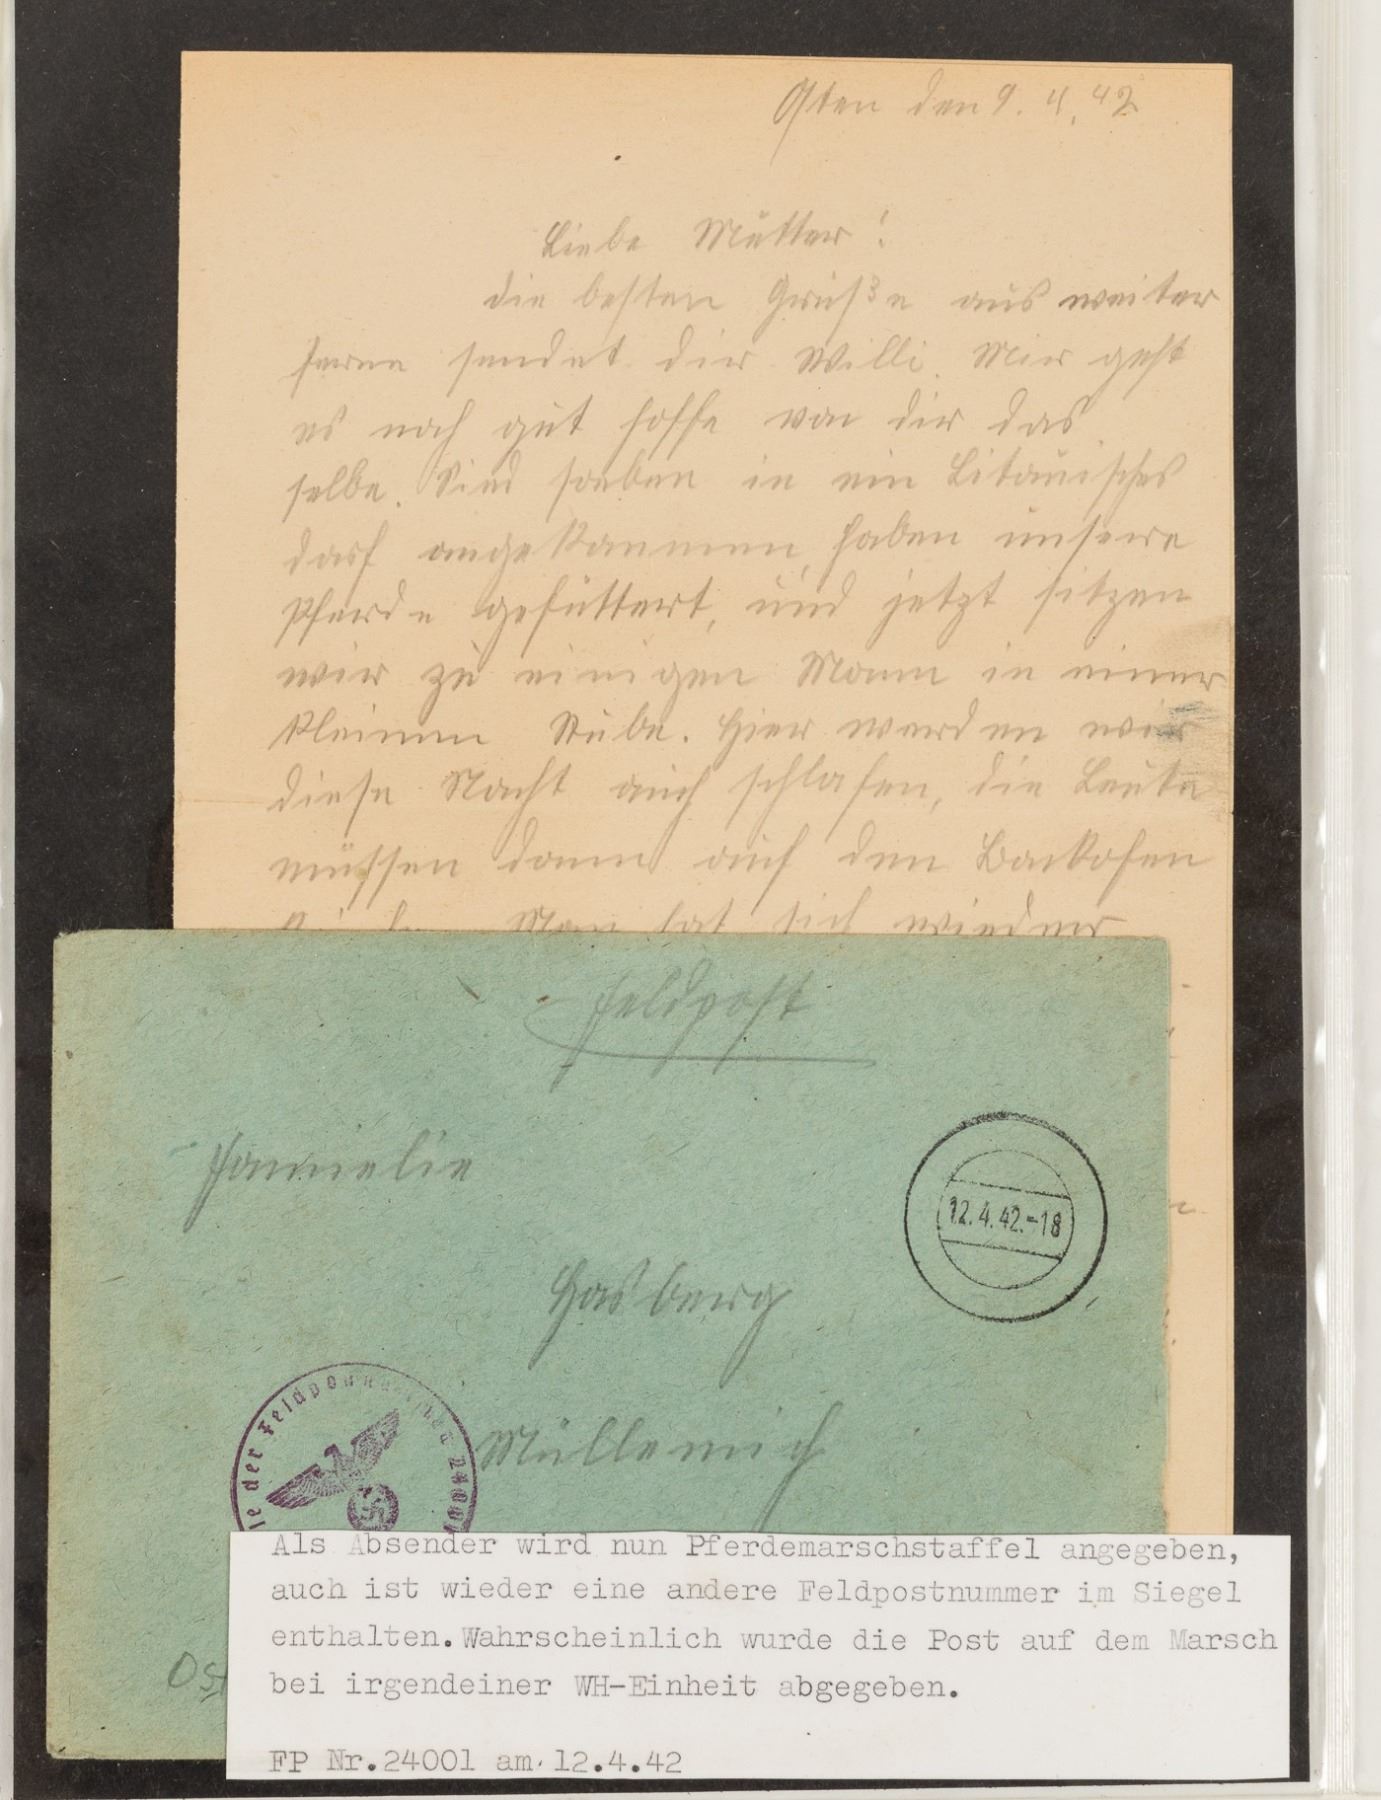 Osten den 9. 4. 42
Liebe Mutter!
die besten Grüße aus weiter
ferne sendet dir Willi. Mir geht
es noch gut hoffe von dir das
selbe. Sind soeben in ein Litauisches
dorf angekommen, haben unsere
Pferde gefüttert, und jetzt sitzen
wir zu einigen Mann in einer
kleinen Stube. Hier werden wir
diese Nacht auch schlafen, die Leute
müssen dann auf den Backofen
Man hat sich wieder
Feldpost
Famielie
12.4.42.-18
Hasberg
Müllenich
der Feldpostnummer 24001
Als Absender wird nun Pferdemarschstaffel angegeben,
auch ist wieder eine andere Feldpostnummer im Siegel
enthalten.Wahrscheinlich wurde die Post auf dem Marsch
bei irgendeiner WH-Einheit abgegeben.
FP Nr.24001 am 12.4.42